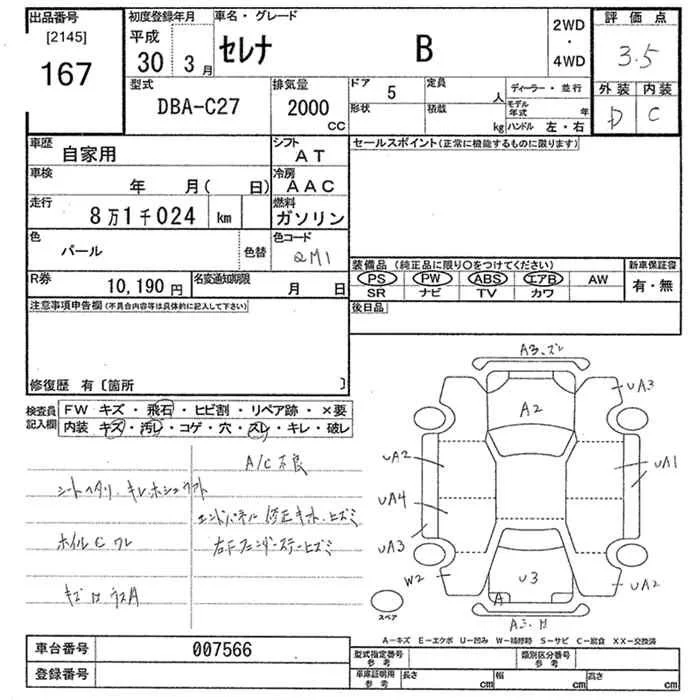 出品番号
[2145]
167
初度登録年月
平成
30 3月
車名・グレード
セレナ B
2WD
・
4WD
評価点
3.5
外装 内装
D C
型式
DBA-C27
排気量
2000
CC
ドア 5
定員 人
形状
積載 kg
ディーラー・並行
モデル年式 年
ハンドル 左・右
車歴 自家用
シフト AT
車検 年 月( 日)
冷房 AAC
走行 8万1千024 km
燃料 ガソリン
色 パール 色替
色コード QM1
R券 10,190円
名変通知期限 月 日
セールスポイント(正常に機能するものに限ります)
装備品(純正品に限り〇をつけてください)
PS PW ABS エアB AW
SR ナビ TV カワ
新車保証書
有・無
後日品
注意事項申告欄(不具合内容等は具体的に記入して下さい)
修復歴 有〔箇所 〕
検査員記入欄
FW キズ・飛石・ヒビ割・リペア跡・×要
内装 キズ・汚レ・コゲ・穴・スレ・キレ・破レ
A/C不良
シートヘタリ、キレ
エンドパネル 修正キズ、ヒズミ
ホイルC ワレ
右Fフェンダーステーヒズミ
A3、ズレ
UA3
A2
UA2
UA1
UA4
UA3
W2
U3
A
UA2
スペア
A-キズ E-エクボ U-凹み W-補修跡 S-サビ C-腐食 XX-交換済
車台番号 007566
登録番号
型式指定番号 参考
類別区分番号 参考
車庫証明用 参考
長さ cm
幅 cm
高さ cm